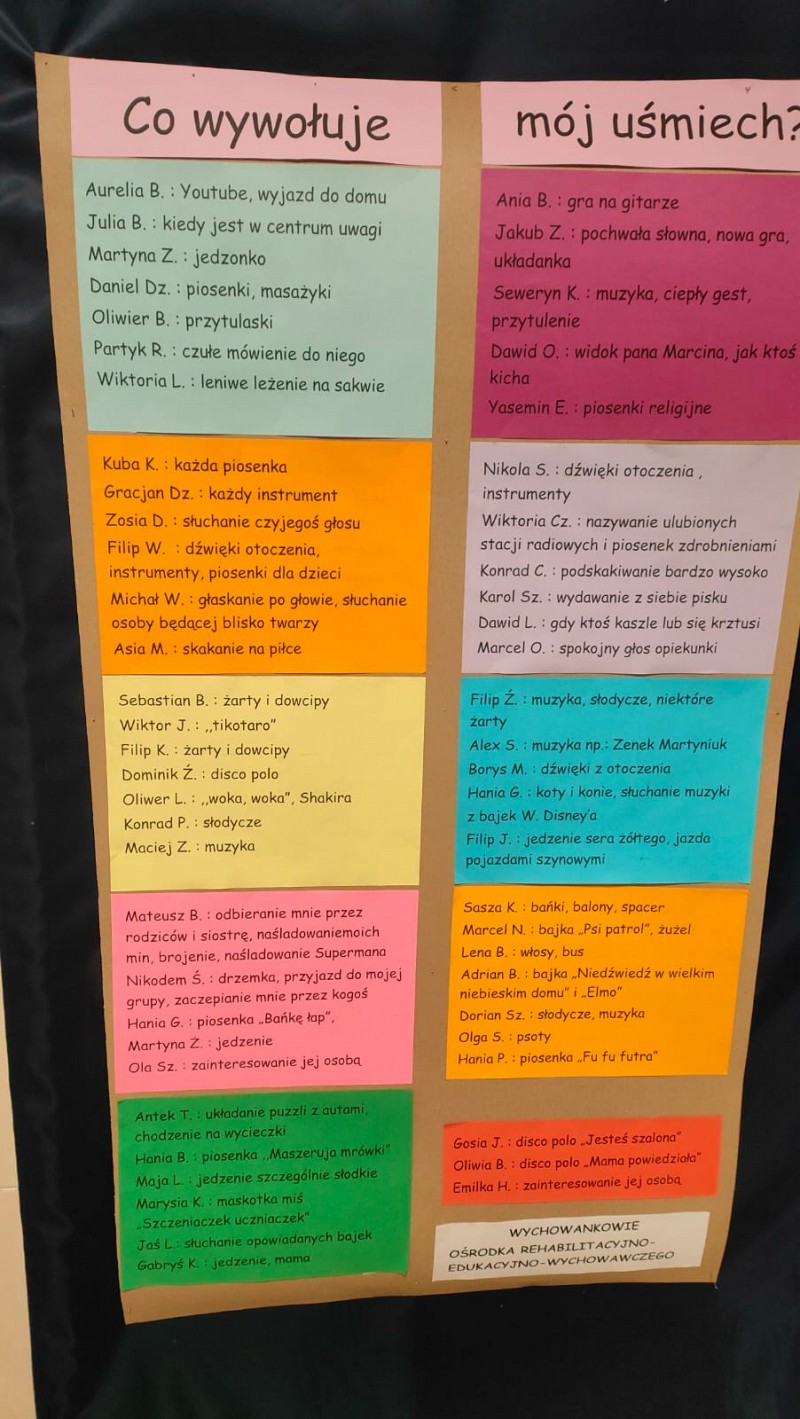 Co wywołuje
mój uśmiech?
Aurelia B. : Youtube, wyjazd do domu
Julia B. : kiedy jest w centrum uwagi
Martyna Z. : jedzonko
Daniel Dz. : piosenki, masażyki
Oliwier B. : przytulaski
Partyk R. : czułe mówienie do niego
Wiktoria L. : leniwe leżenie na sakwie
Kuba K. : każda piosenka
Gracjan Dz. : każdy instrument
Zosia D. : słuchanie czyjegoś głosu
Filip W. : dźwięki otoczenia,
instrumenty, piosenki dla dzieci
Michał W. : głaskanie po głowie, słuchanie
osoby będącej blisko twarzy
Asia M. : skakanie na piłce
Sebastian B. : żarty i dowcipy
Wiktor J. : ,,tikotaro”
Filip K. : żarty i dowcipy
Dominik Ź. : disco polo
Oliwer L. : ,,woka, woka”, Shakira
Konrad P. : słodycze
Maciej Z. : muzyka
Mateusz B. : odbieranie mnie przez
rodziców i siostrę, naśladowaniemoich
min, brojenie, naśladowanie Supermana
Nikodem Ś. : drzemka, przyjazd do mojej
grupy, zaczepianie mnie przez kogoś
Hania G. : piosenka „Bańkę łap”,
Martyna Ż. : jedzenie
Ola Sz. : zainteresowanie jej osobą
Antek T. : układanie puzzli z autami,
chodzenie na wycieczki
Hania B. : piosenka ,,Maszerują mrówki”
Maja L. : jedzenie szczególnie słodkie
Marysia K. : maskotka miś
„Szczeniaczek uczniaczek”
Jaś L.: słuchanie opowiadanych bajek
Gabryś K. : jedzenie, mama
Ania B. : gra na gitarze
Jakub Z. : pochwała słowna, nowa gra,
układanka
Seweryn K. : muzyka, ciepły gest,
przytulenie
Dawid O. : widok pana Marcina, jak ktoś
kicha
Yasemin E. : piosenki religijne
Nikola S. : dźwięki otoczenia ,
instrumenty
Wiktoria Cz. : nazywanie ulubionych
stacji radiowych i piosenek zdrobnieniami
Konrad C. : podskakiwanie bardzo wysoko
Karol Sz. : wydawanie z siebie pisku
Dawid L. : gdy ktoś kaszle lub się krztusi
Marcel O. : spokojny głos opiekunki
Filip Ź. : muzyka, słodycze, niektóre
żarty
Alex S. : muzyka np.: Zenek Martyniuk
Borys M. : dźwięki z otoczenia
Hania G. : koty i konie, słuchanie muzyki
z bajek W. Disney’a
Filip J. : jedzenie sera żółtego, jazda
pojazdami szynowymi
Sasza K. : bańki, balony, spacer
Marcel N. : bajka „Psi patrol”, żużel
Lena B. : włosy, bus
Adrian B. : bajka „Niedźwiedź w wielkim
niebieskim domu” i „Elmo”
Dorian Sz. : słodycze, muzyka
Olga S. : psoty
Hania P. : piosenka „Fu fu futra”
Gosia J. : disco polo „Jesteś szalona”
Oliwia B. : disco polo „Mama powiedziała”
Emilka H. : zainteresowanie jej osobą
WYCHOWANKOWIE
OŚRODKA REHABILITACYJNO-
EDUKACYJNO-WYCHOWAWCZEGO